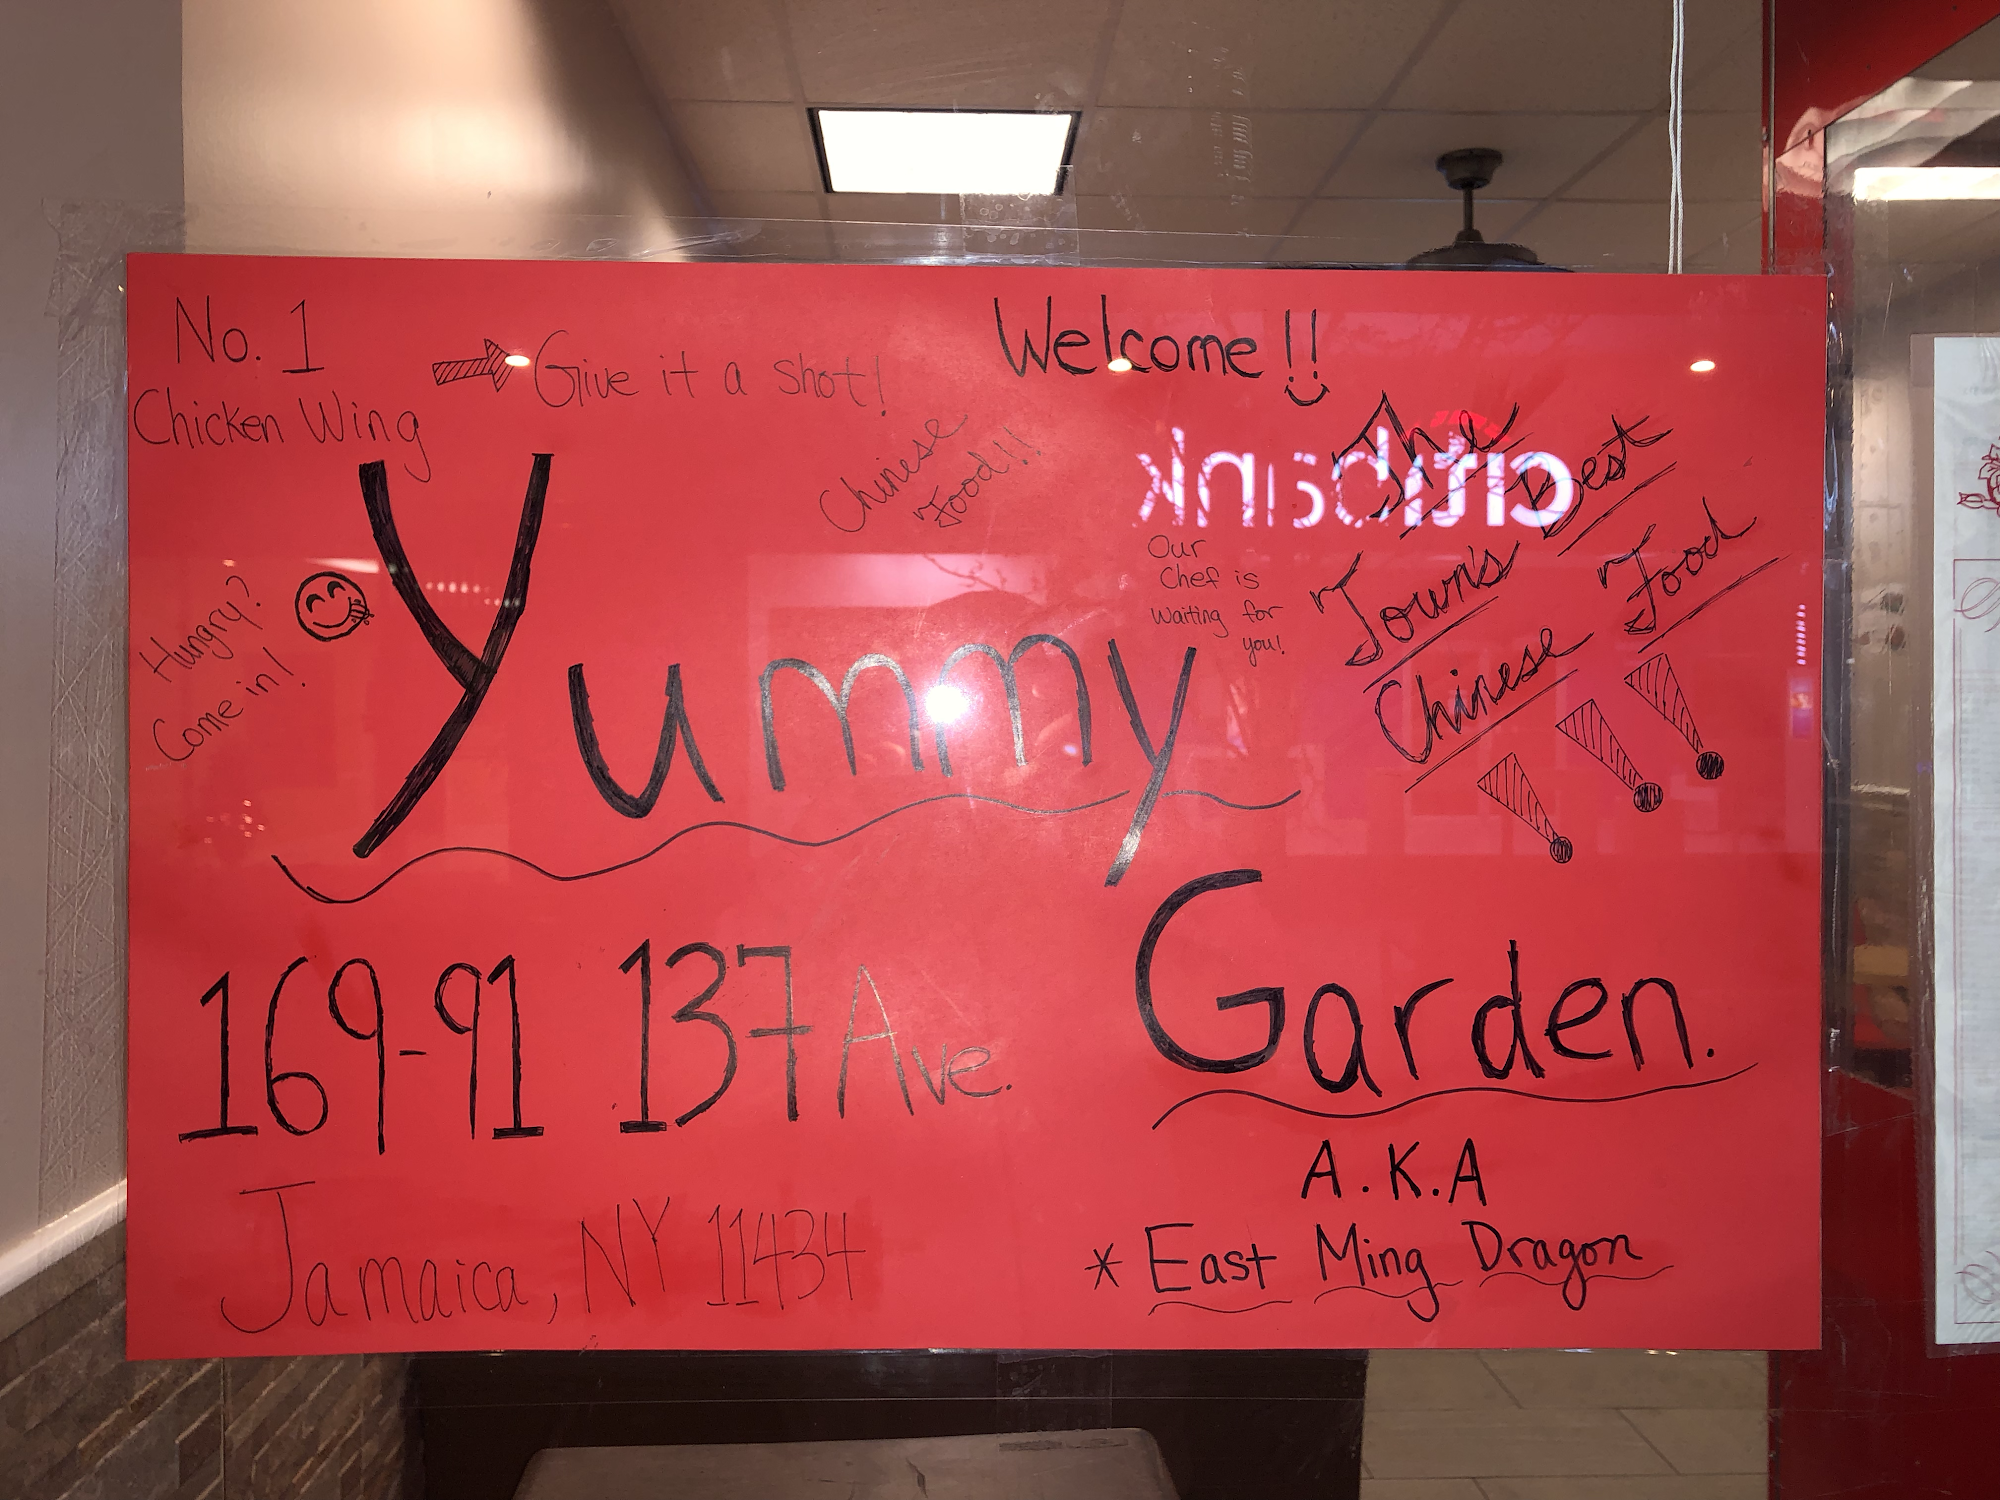 No. 1
Chicken Wing
Give it a shot!
Welcome!!
Chinese
Food!!!
citibank
The
Town's Best
Chinese Food
!!!
Our
Chef is
Waiting for
you!
Hungry?
Come in!
Yummy
Garden.
169-91 137 Ave.
Jamaica, NY 11434
A.K.A
* East Ming Dragon